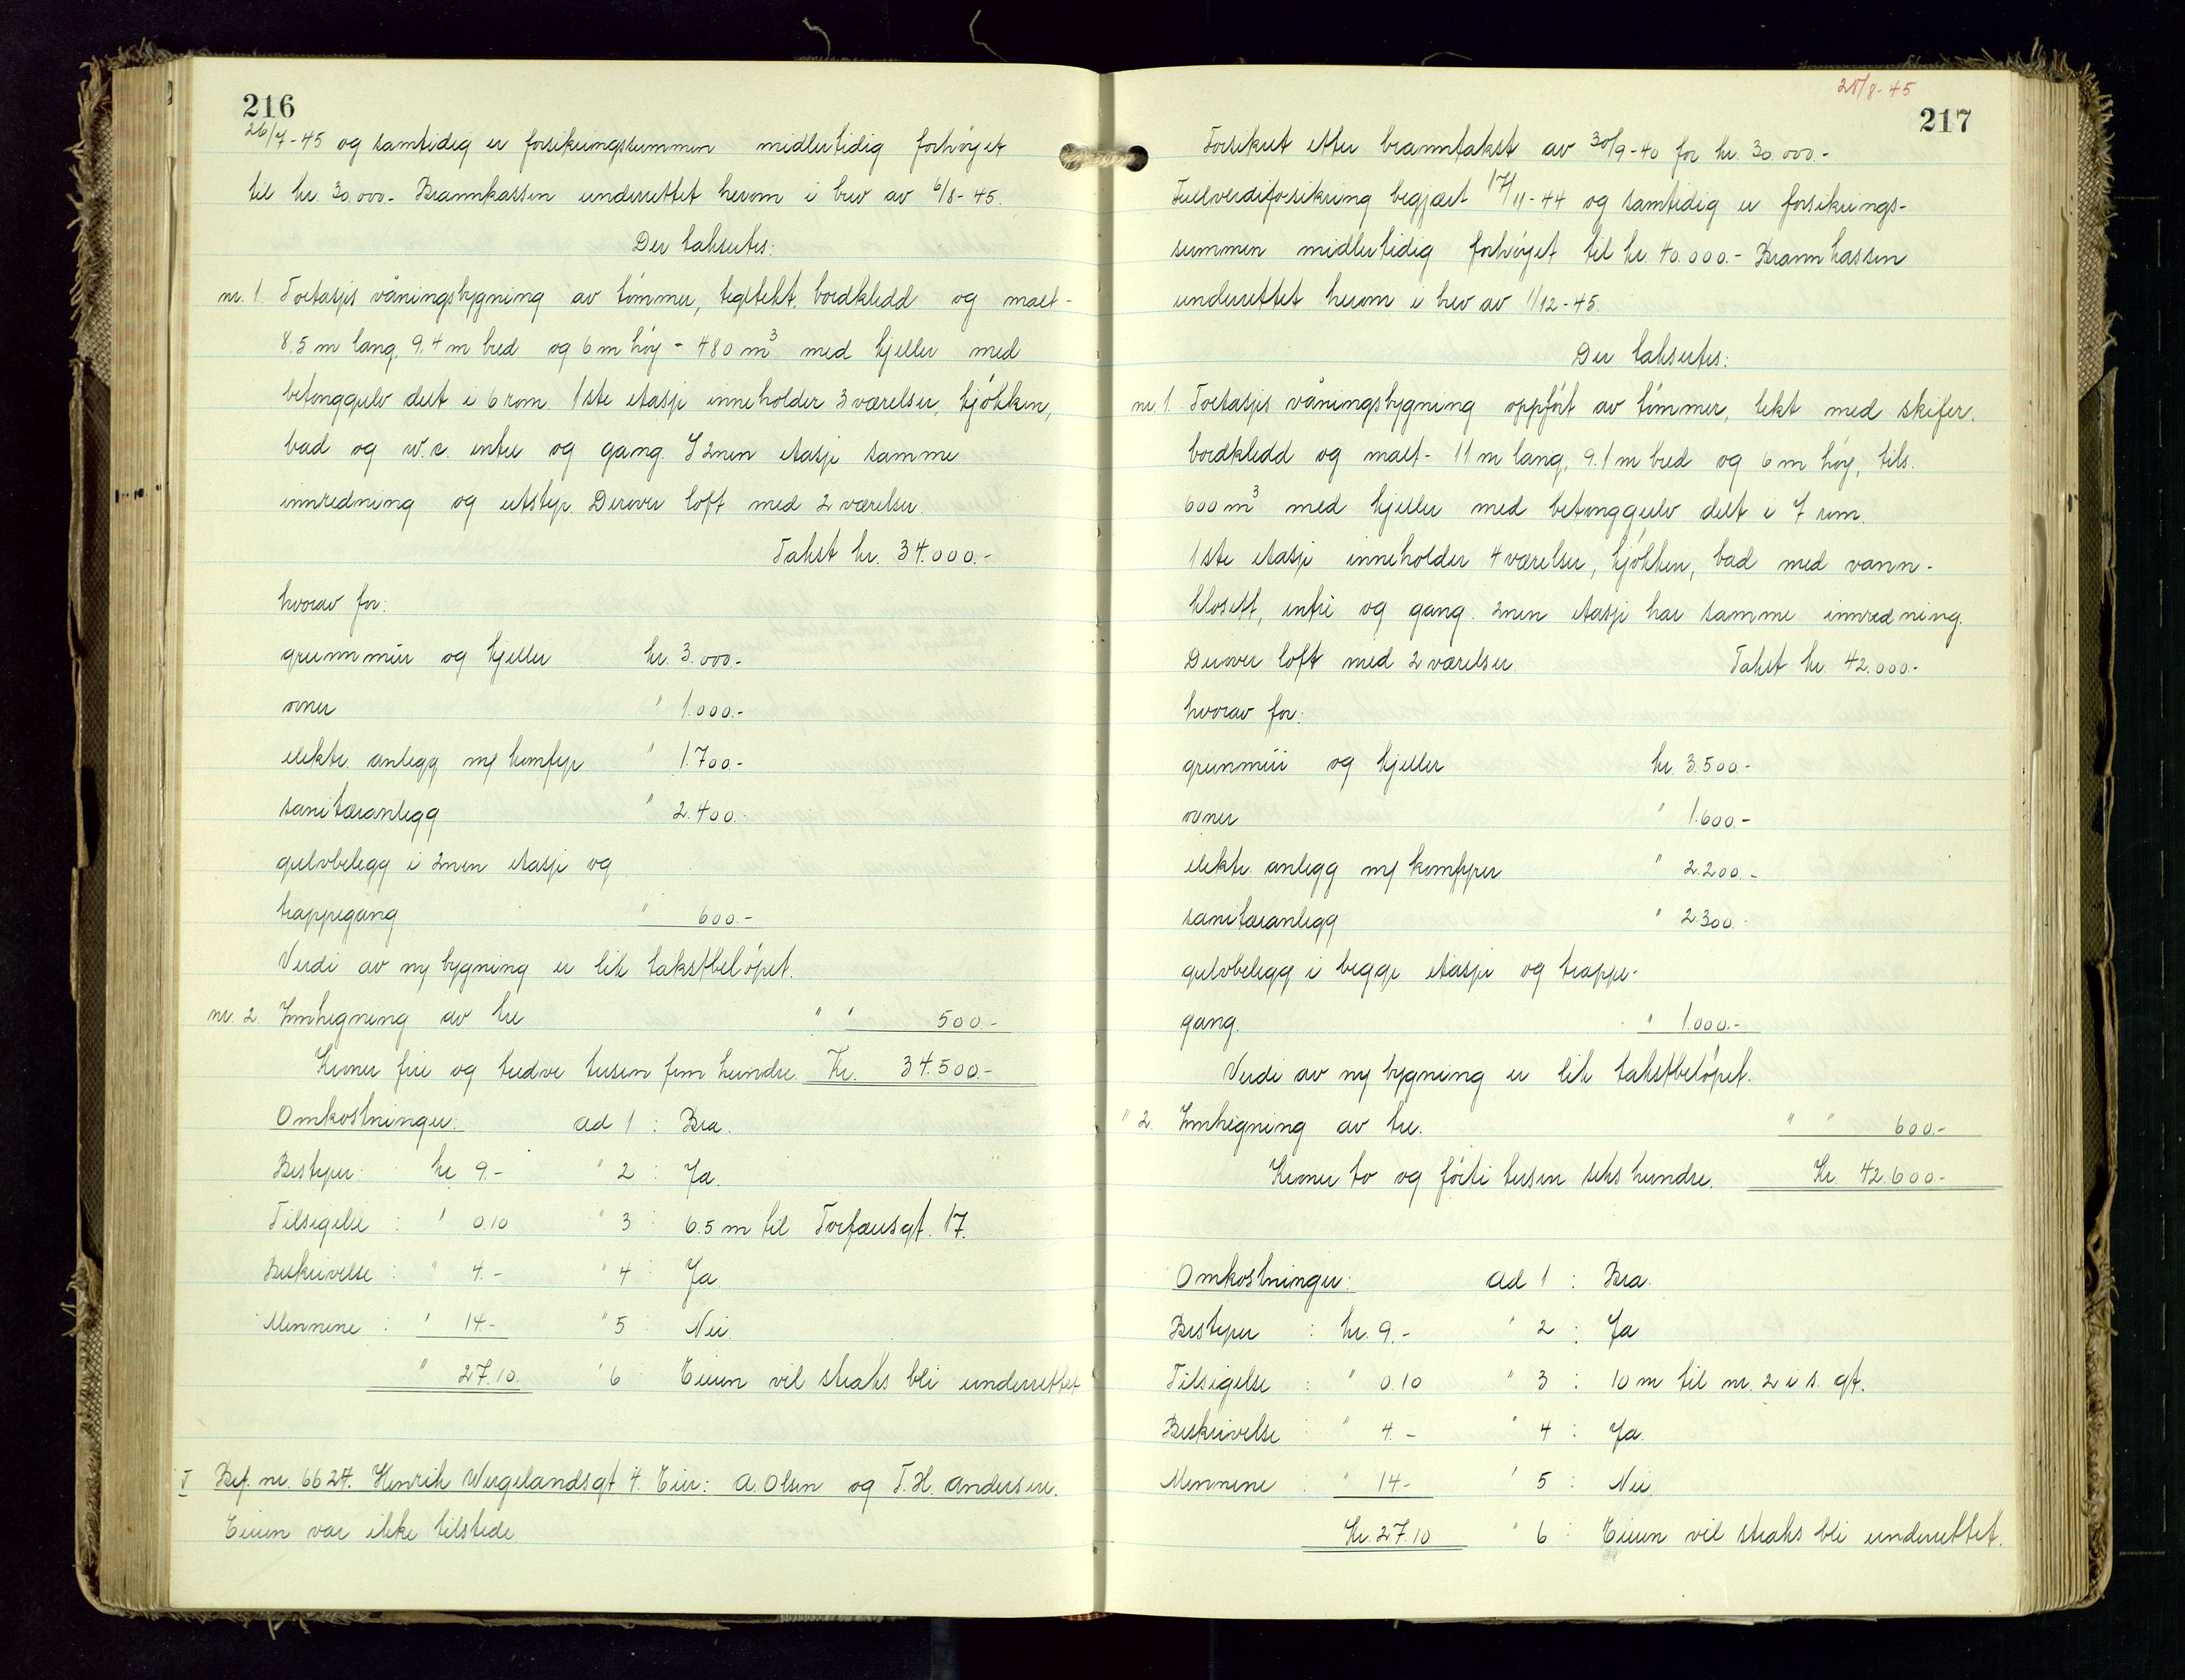 216
26/7-45 og samtidig er forsikringssummen midlertidig forhöyet
til kr. 30.000.- Brannkassen underrettet herom i brev av 6/8-45.
Der takseres:
nr. 1. Toetasjes våningsbygning av tömmer, teglstekt, bordkledd og malt-
8.5 m lang, 9.4 m bred og 6 m höy - 480 m³ med kjeller med
betonggulv delt i 6 rom. 1ste etasje inneholder 3 værelser, kjökken,
bad og w.c. entre og gang. I 2nen etasje samme
innredning og utstyr. Derover loft med 2 værelser.
Takst kr. 34.000.-
hvorav for:
grunnmur og kjeller kr. 3.000.-
ovner " 1.000.-
elektr. anlegg m/ komfyr " 1.700.-
sanitæranlegg " 2.400.-
gulvbelegg i 2nen etasje og
trappegang " 600.-
Verdi av ny bygning er lik takstbelöpet.
nr. 2. Innhegning av tre " " 500.-
Kroner fire og tredve tusen fem hundre. Kr. 34.500.-
Omkostninger: ad 1 : Bra.
Bestyrer: kr. 9.- " 2 : Ja.
Tilsigelse : " 0.10 " 3 : 6.5 m til Torfæusgt. 17.
Beskrivelse : " 4.- " 4 : Ja.
Mennene : " 14.- " 5 : Nei.
" 27.10. " 6 : Eieren vil straks bli underrettet
V Bef. nr. 6627. Henrik Wergelandsgt 4. Eier: A. Olsen og T. H. Andersen.
Eieren var ikke tilstede
28/8-45
217
Forsikret efter branntakst av 30/9-40 for kr. 30.000.-
Fullverdiforsikring begjært 17/11-44 og samtidig er forsikrings-
summen midlertidig forhöyet til kr. 40.000.- Brannkassen
underrettet herom i brev av 1/12-45.
Der takseres:
nr. 1. Toetasjes våningsbygning oppfört av tömmer, tekt med skifer.
bordkledd og malt- 11 m lang, 9.1 m bred og 6 m höy, tils.
600 m³ med kjeller med betonggulv delt i 7 rom.
1ste etasje inneholder 4 værelser, kjökken, bad med vann-
klosett, entré og gang. 2nen etasje har samme innredning.
Derover loft med 2 værelser. Takst kr. 42.000.-
hvorav for:
grunnmur og kjeller kr. 3.500.-
ovner " 1.600.-
elektr. anlegg m/ komfyrer " 2.200.-
sanitæranlegg " 2.300.-
gulvbelegg i begge etasjer og trappe-
gang. " 1.000.-
Verdi av ny bygning er lik takstbelöpet.
" 2. Innhegning av tre. " " 600.-
Kroner to og förti tusen seks hundre. Kr. 42.600.-
Omkostninger: ad 1 : Bra.
Bestyrer : kr. 9.- " 2 : Ja
Tilsigelse : " 0.10 " 3 : 10 m til nr. 2 i s. gt.
Beskrivelse : " 4.- " 4 : Ja.
Mennene : " 14.- " 5 : Nei
Kr. 27.10 " 6 : Eieren vil straks bli underrettet.